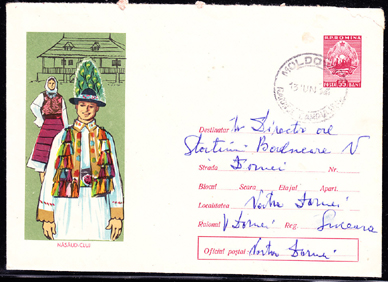 R.P.ROMINA
55 BANI
MOLDO
Destinatar Tv. Director al
Stațiunii Balneare V
Strada Dornei Nr.
Blocul Scara Etajul Apart.
Localitatea Vatra Dornei
Raionul V Dornei Reg. Suceava
Oficiul poștal Vatra Dornei
NĂSĂUD-CLUJ